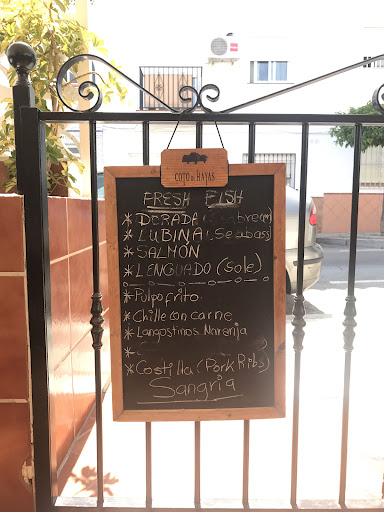 COTO DE HAYAS
FRESH FISH
* DORADA (Seabream)
* LUBINA (Seabass)
* SALMON
* LENGUADO (Sole)
* Pulpo frito
* Chille con carne
* Langostinos Naranja
*
* Costilla (Pork Ribs)
Sangria